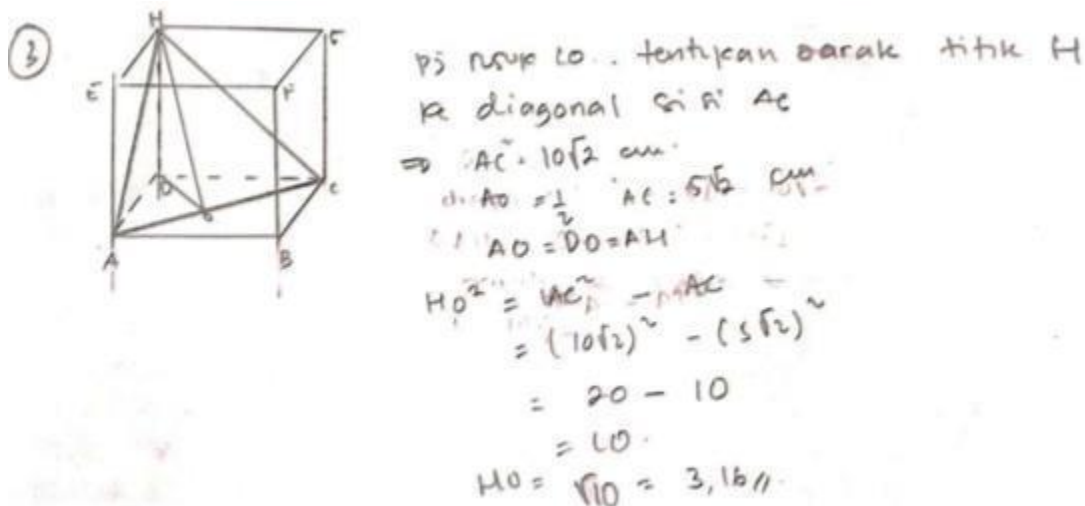 3
H
G
E
F
D
O
C
A
B
Pj rusuk 10.. tentukan jarak titik H
ke diagonal sisi AC
⇒ AC = 10√2 cm.
AO = 1/2 AC = 5√2 cm
AO = DO = AH
HO² = AC² - AC
= (10√2)² - (5√2)²
= 20 - 10
= 10.
HO = √10 = 3,16 //.